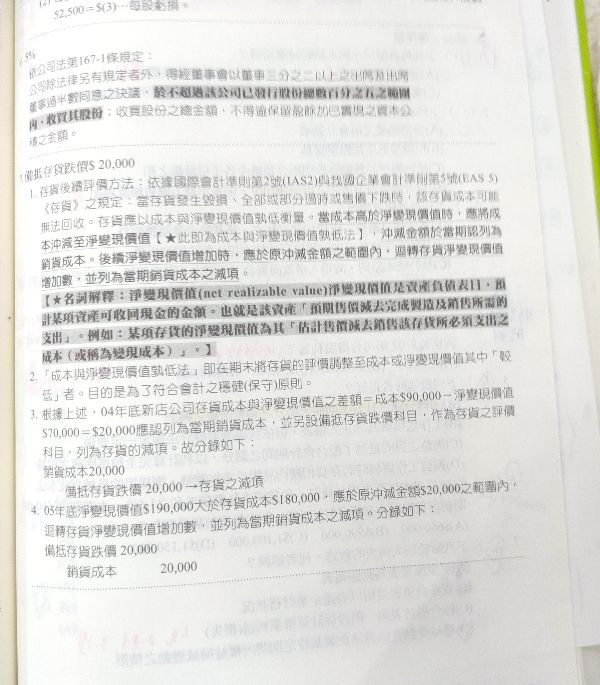 52,500＝$(3)…每股虧損。
5%
依公司法第167-1條規定：
公司除法律另有規定者外，得經董事會以董事三分之二以上之出席及出席
董事過半數同意之決議，於不超過該公司已發行股份總數百分之五之範圍
內，收買其股份；收買股份之總金額，不得逾保留盈餘加已實現之資本公
積之金額。
備抵存貨跌價$ 20,000
1. 存貨後續評價方法：依據國際會計準則第2號(IAS2)與我國企業會計準則第5號(EAS 5)
《存貨》之規定：當存貨發生毀損、全部或部分過時或售價下跌時，該存貨成本可能
無法回收。存貨應以成本與淨變現價值孰低衡量。當成本高於淨變現價值時，應將成
本沖減至淨變現價值【★此即為成本與淨變現價值孰低法】，沖減金額於當期認列為
銷貨成本。後續淨變現價值增加時，應於原沖減金額之範圍內，迴轉存貨淨變現價值
增加數，並列為當期銷貨成本之減項。
【★名詞解釋：淨變現價值(net realizable value)淨變現價值是資產負債表日，預
計某項資產可收回現金的金額。也就是該資產「預期售價減去完成製造及銷售所需的
支出」。例如：某項存貨的淨變現價值為其「估計售價減去銷售該存貨所必須支出之
成本（或稱為變現成本）」。】
2. 「成本與淨變現價值孰低法」即在期末將存貨的評價調整至成本或淨變現價值其中「較
低」者。目的是為了符合會計之穩健(保守)原則。
3. 根據上述，04年底新店公司存貨成本與淨變現價值之差額＝成本$90,000－淨變現價值
$70,000＝$20,000應認列為當期銷貨成本，並另設備抵存貨跌價科目，作為存貨之評價
科目，列為存貨的減項。故分錄如下：
銷貨成本20,000
備抵存貨跌價 20,000 →存貨之減項
4. 05年底淨變現價值$190,000大於存貨成本$180,000，應於原沖減金額$20,000之範圍內，
迴轉存貨淨變現價值增加數，並列為當期銷貨成本之減項。分錄如下：
備抵存貨跌價 20,000
銷貨成本 20,000